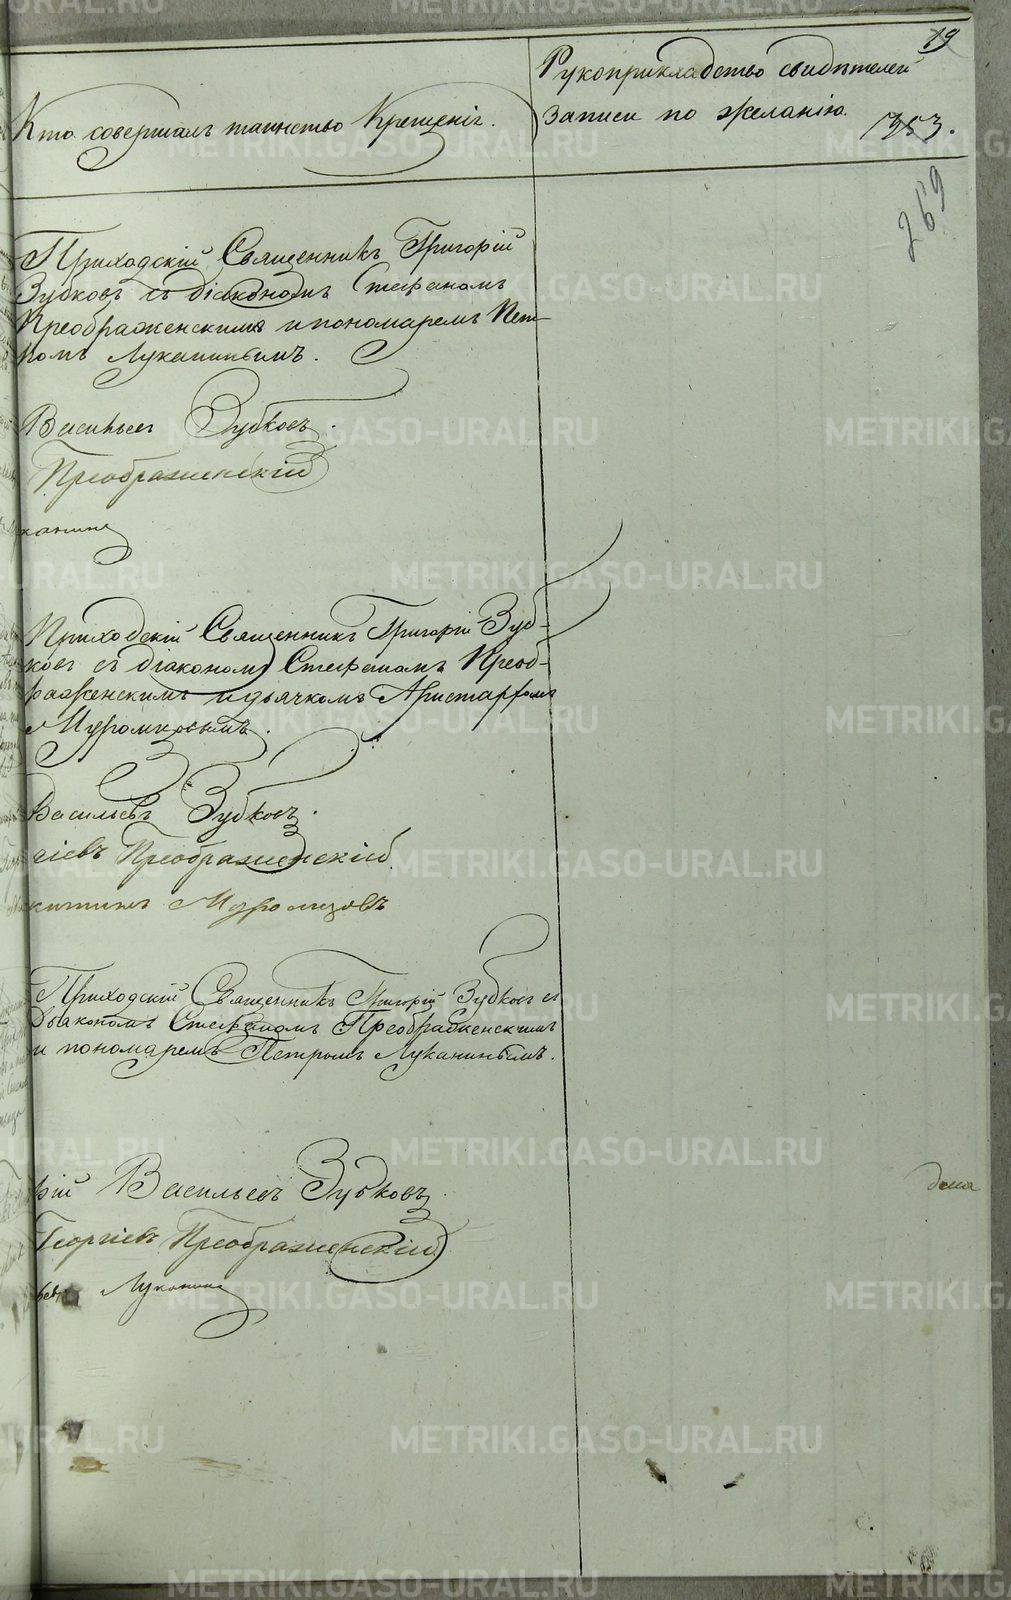 19
Рукоприкладство свидѣтелей
Кто совершалъ таинство Крещенія.
записи по желанію.
1953.
269
Приходскій Священникъ Григорій
Зубковъ съ діакономъ Стефаномъ
Преображенскимъ и пономаремъ Пет-
ромъ Луканинымъ.
Васильевъ Зубковъ.
Преображенскій
канинъ
Приходскій Священникъ Григорій Зуб-
ковъ съ діакономъ Стефаномъ Преоб-
раженскимъ и дьячкомъ Аристархомъ
Муромцовымъ.
Васильевъ Зубковъ.
гіевъ Преображенскій
китинъ Муромцовъ
Приходскій Священникъ Григорій Зубковъ съ
дьякономъ Стефаномъ Преображенскимъ
и пономаремъ Петромъ Луканинымъ.
рій Васильевъ Зубковъ.
Георгіевъ Преображенскій
Луканинъ
METRIKI.GASO-URAL.RU